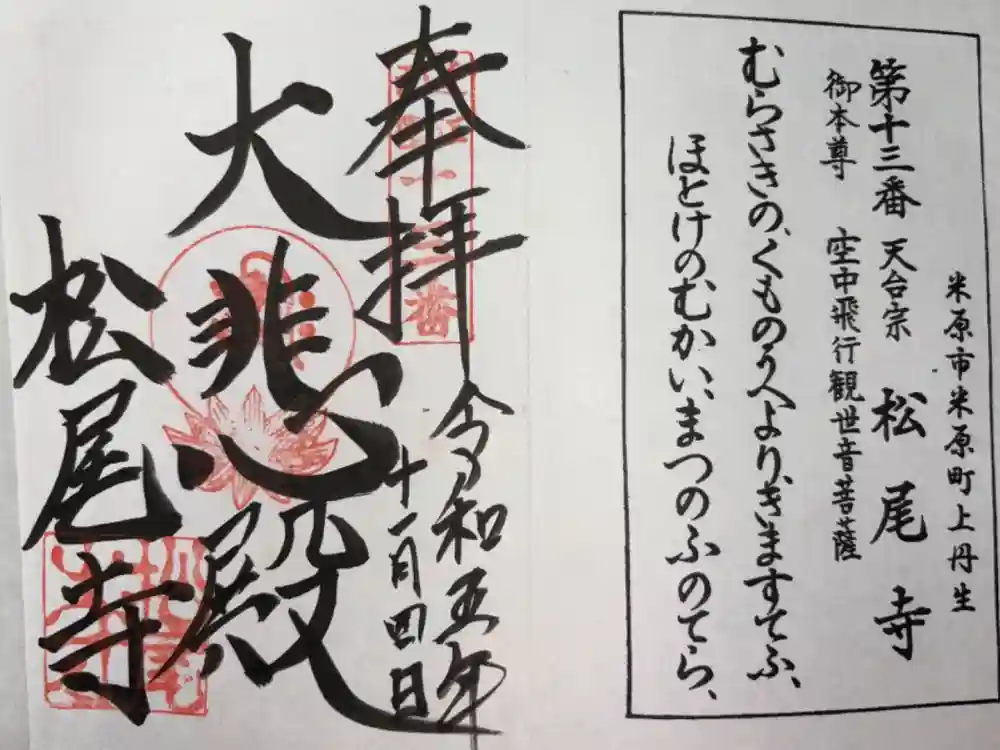 米原市米原町上丹生
第十三番 天台宗 松尾寺
御本尊 空中飛行観世音菩薩
むらさきの、くものうへより、きますてふ、
ほとけのむかい、まつのふのてら、
奉拝
令和五年
十一月四日
大悲殿
松尾寺